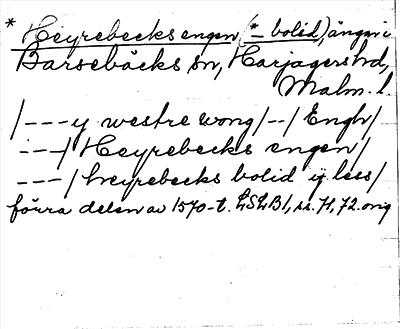 * Heyrebecks engen (* - bolid), ängar i
Barsebäcks sn, Harjagers hd,
Malm. l.
/ --- y westre wong / -- / Engh /
--- / Heyrebecks engen /
--- / hreyrebecks bolid ij less /
förra delen av 1570-t. LSLB1, ss. 71, 72. orig